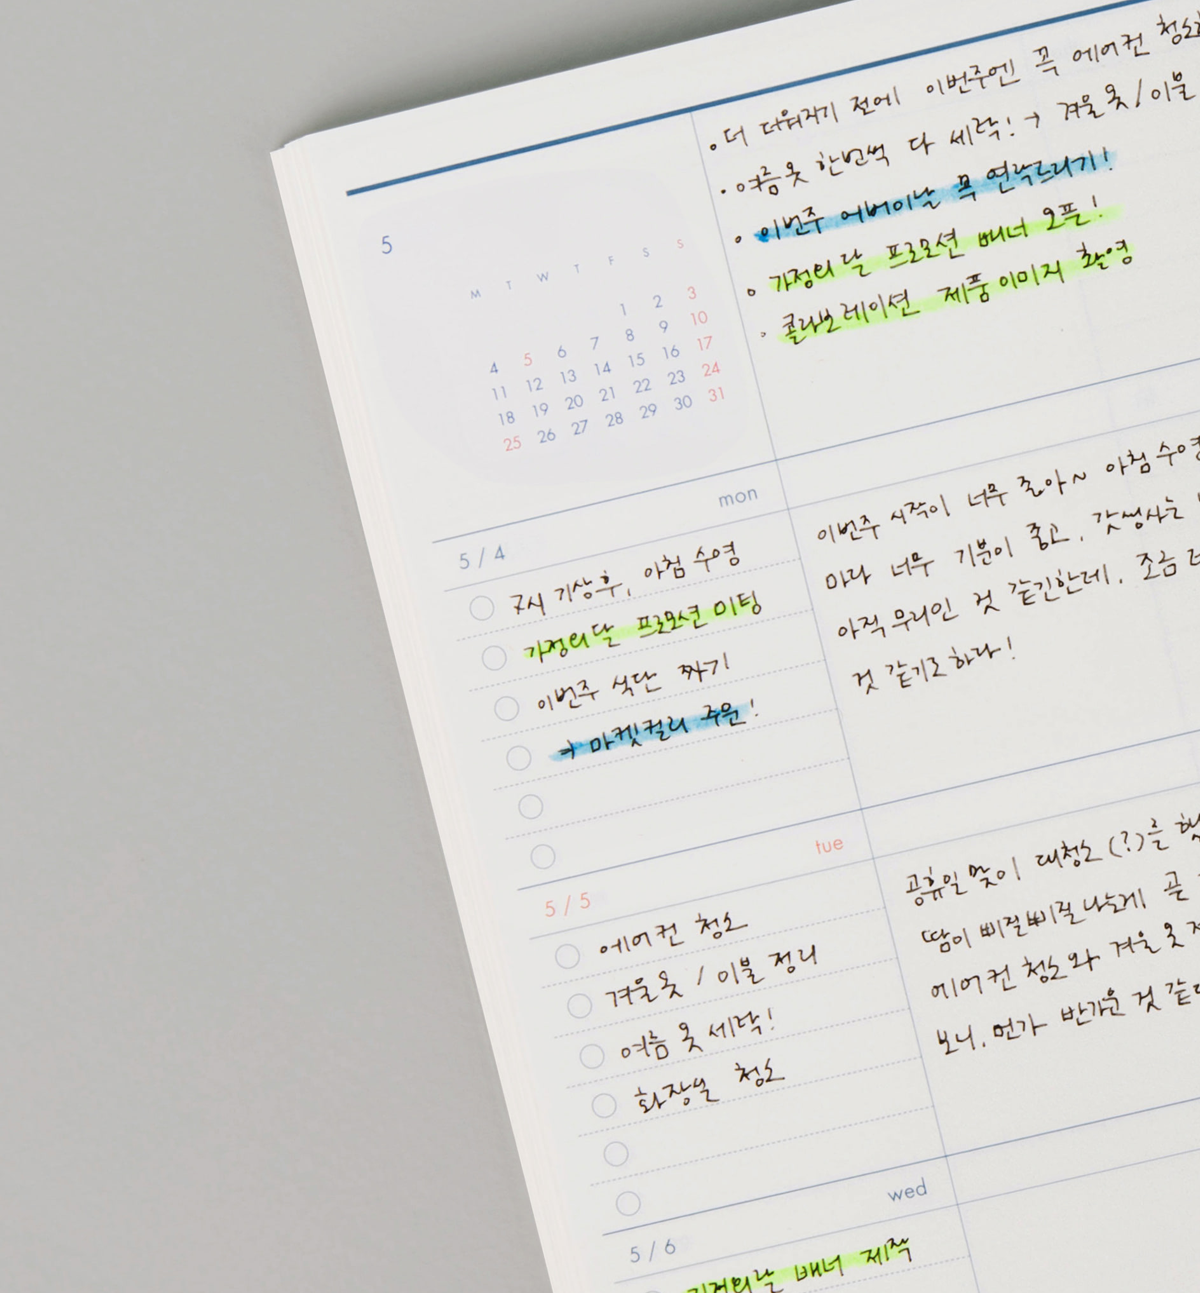 5
M T W T F S S
1 2 3
4 5 6 7 8 9 10
11 12 13 14 15 16 17
18 19 20 21 22 23 24
25 26 27 28 29 30 31
• 더 더워지기 전에 이번주엔 꼭 에어컨 청소
• 여름옷 한번씩 다 세탁! → 겨울옷/이불
• 이번주 어버이날 꼭 연락드리기!
• 가정의달 프로모션 배너 오픈!
• 콜라보레이션 제품이미지 촬영
mon
5 / 4
7시 기상후, 아침 수영
가정의달 프로모션 미팅
이번주 식단 짜기
→ 마켓컬리 주문!
이번주 시작이 너무 좋아~ 아침수영
마다 너무 기분이 좋고, 갓생사는
아직 무리인 것 같긴한데, 조금
것 같기도하다!
tue
5 / 5
에어컨 청소
겨울옷 / 이불 정리
여름 옷 세탁!
화장실 청소
공휴일 맞이 대청소(?)를
땀이 삐질삐질나는게 곧
에어컨 청소와 겨울옷
보니, 뭔가 반가운 것 같
wed
5 / 6
가정의달 배너 제작